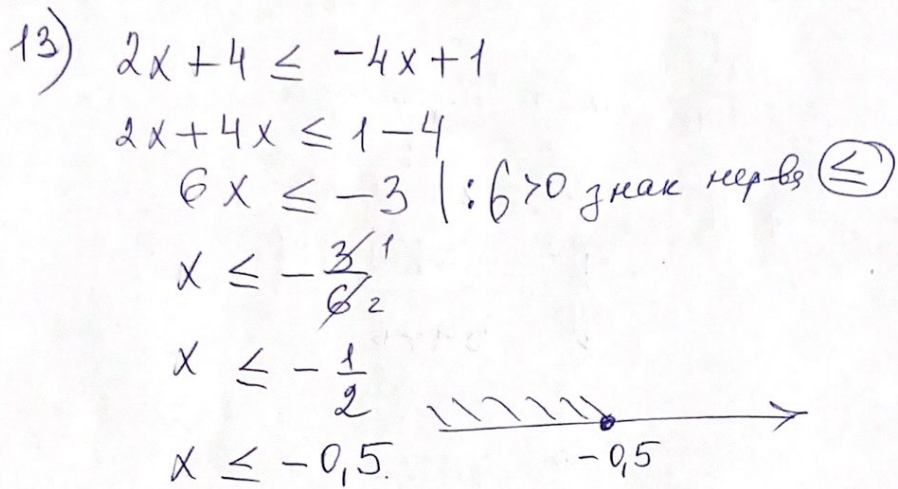 13) 2x + 4 ≤ -4x + 1
2x + 4x ≤ 1 - 4
6x ≤ -3 | :6>0 знак нерва ≤
x ≤ - 3 1 / 6 2
x ≤ - 1/2
x ≤ -0,5.
-0,5